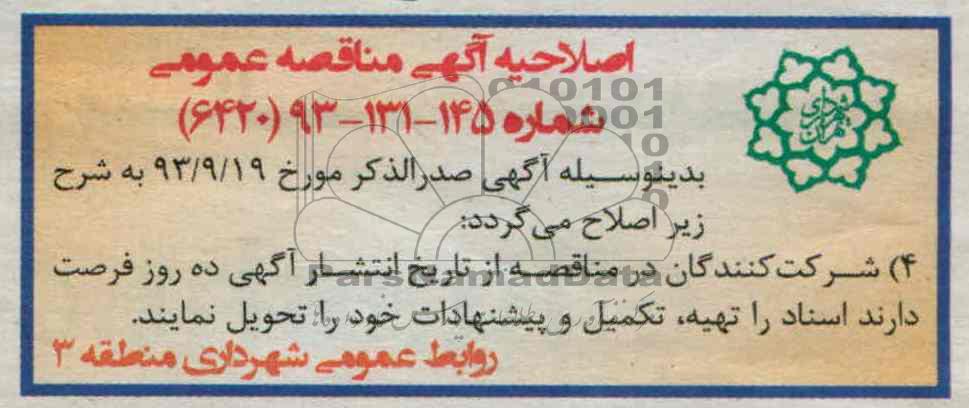 اصلاحیه آگهی مناقصه عمومی
شماره ۱۴۵-۱۳۱-۹۳ (۶۴۲۰)
بدینوسیله آگهی صدرالذکر مورخ ۹۳/۹/۱۹ به شرح
زیر اصلاح می‌گردد:
۴) شرکت‌کنندگان در مناقصه از تاریخ انتشار آگهی ده روز فرصت
دارند اسناد را تهیه، تکمیل و پیشنهادات خود را تحویل نمایند.
روابط عمومی شهرداری منطقه ۳
شهرداری تهران
ParsNamadData